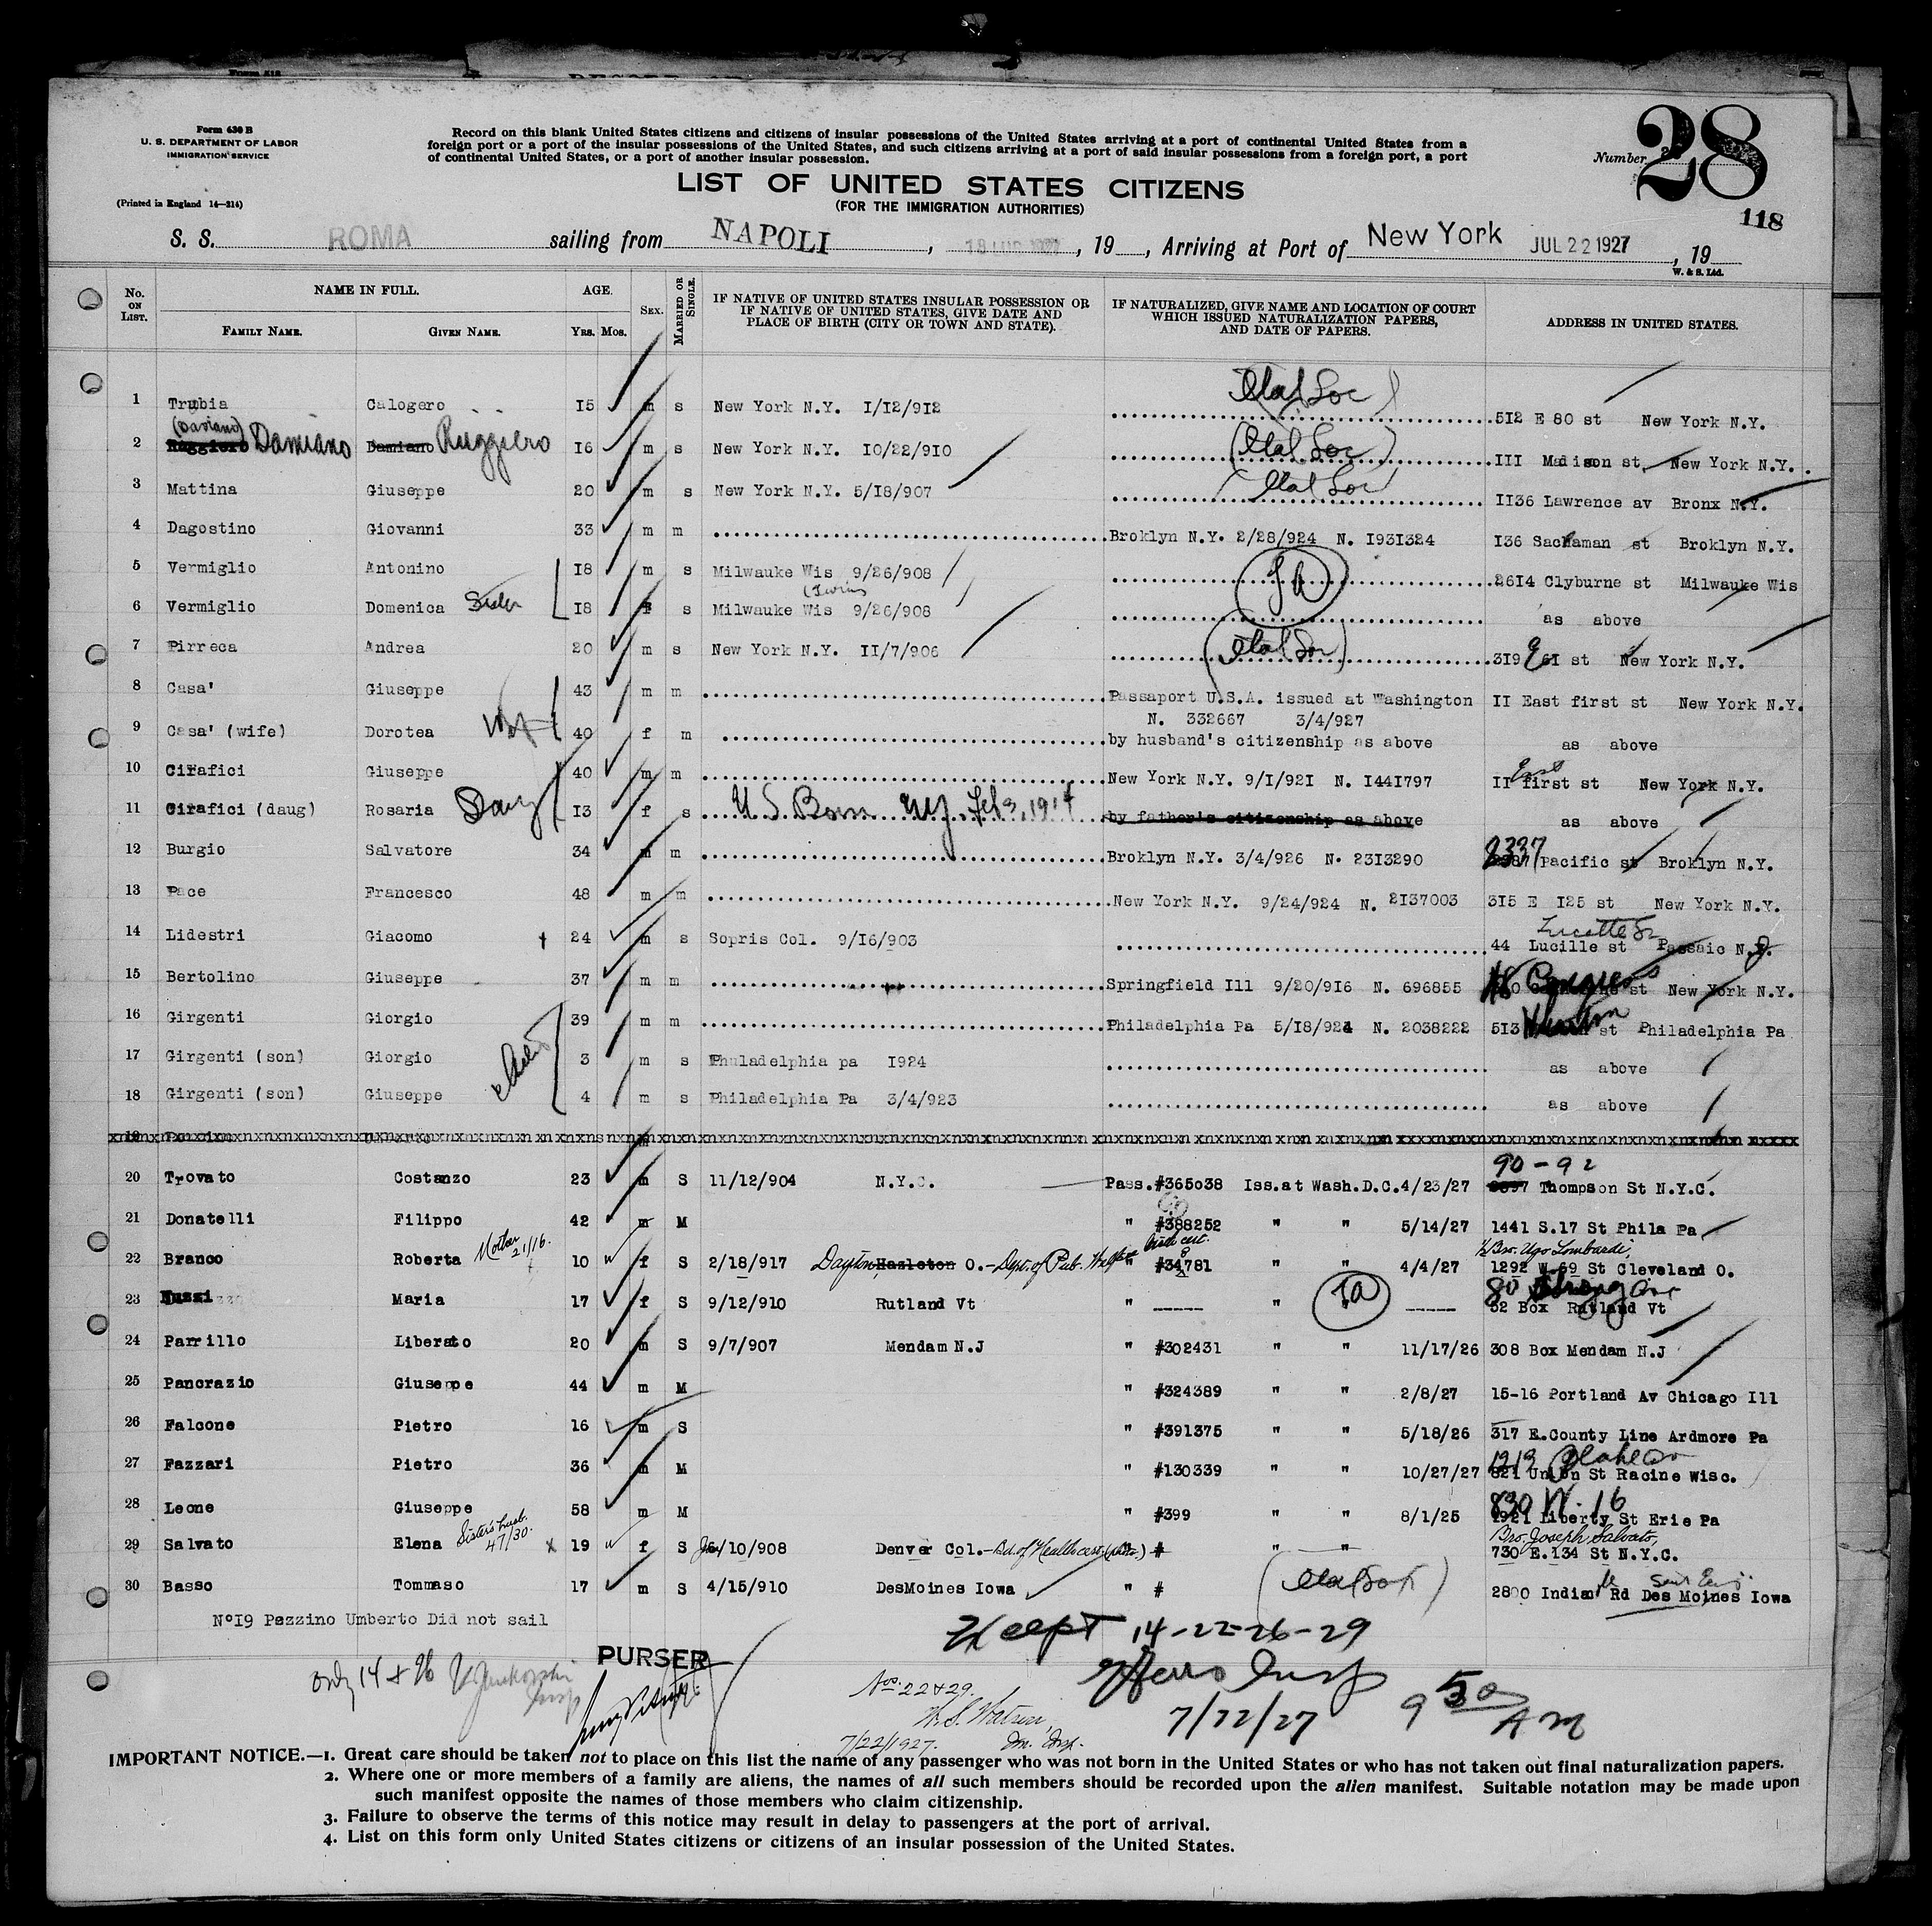 Form 630 B
U. S. DEPARTMENT OF LABOR
IMMIGRATION SERVICE
(Printed in England 14—214)
Record on this blank United States citizens and citizens of insular possessions of the United States arriving at a port of continental United States from a
foreign port or a port of the insular possessions of the United States, and such citizens arriving at a port of said insular possessions from a foreign port, a port
of continental United States, or a port of another insular possession.
Number 28
118
LIST OF UNITED STATES CITIZENS
(FOR THE IMMIGRATION AUTHORITIES)
S. S. ROMA sailing from NAPOLI, 19 , Arriving at Port of New York JUL 22 1927, 19
W. & S. Ltd.
No. ON LIST. NAME IN FULL. AGE. SEX. MARRIED OR SINGLE. IF NATIVE OF UNITED STATES INSULAR POSSESSION OR IF NATIVE OF UNITED STATES, GIVE DATE AND PLACE OF BIRTH (CITY OR TOWN AND STATE). IF NATURALIZED, GIVE NAME AND LOCATION OF COURT WHICH ISSUED NATURALIZATION PAPERS, AND DATE OF PAPERS. ADDRESS IN UNITED STATES.
FAMILY NAME. GIVEN NAME. YRS. MOS.
1 Trubia Calogero 15 m s New York N.Y. I/I2/9I2 5I2 E 80 st New York N.Y.
2 Ruggiero Damiano Damiano Ruggiero I6 m s New York N.Y. I0/22/9I0 III Madison st, New York N.Y.
3 Mattina Giuseppe 20 m s New York N.Y. 5/I8/907 II36 Lawrence av Bronx N.Y.
4 Dagostino Giovanni 33 m m Broklyn N.Y. 2/28/924 N. I93I324 I36 Sackaman st Broklyn N.Y.
5 Vermiglio Antonino I8 m s Milwauke Wis 9/26/908 26I4 Clyburne st Milwauke Wis
(Twins
6 Vermiglio Domenica Sister I8 f s Milwauke Wis 9/26/908 as above
7 Pirreca Andrea 20 m s New York N.Y. II/7/906 3I9 E 6I st New York N.Y.
8 Casa' Giuseppe 43 m m Passaport U.S.A. issued at Washington II East first st New York N.Y.
N. 332667 3/4/927
9 Casa' (wife) Dorotea 40 f m by husband's citizenship as above as above
10 Cirafici Giuseppe 40 m m New York N.Y. 9/I/92I N. I44I797 II East first st New York N.Y.
11 Cirafici (daug) Rosaria Daug I3 f s U S Born N.Y. Feb 3, 1914 by father's citizenship as above as above
12 Burgio Salvatore 34 m m Broklyn N.Y. 3/4/926 N. 23I3290 2337 Pacific st Broklyn N.Y.
13 Pace Francesco 48 m m New York N.Y. 9/24/924 N. 2I37003 3I5 E I25 st New York N.Y.
14 Lidestri Giacomo 24 m s Sopris Col. 9/I6/903 44 Lucille st Passaic N.J.
15 Bertolino Giuseppe 37 m m Springfield Ill 9/20/9I6 N. 696855 Congress st New York N.Y.
16 Girgenti Giorgio 39 m m Philadelphia Pa 5/I8/924 N. 2038222 5I3 st Philadelphia Pa
17 Girgenti (son) Giorgio 3 m s Phuladelphia pa I924 as above
18 Girgenti (son) Giuseppe 4 m s Philadelphia Pa 3/4/923 as above
19
20 Trovato Costanzo 23 m S 11/12/904 N.Y.C. Pass. #365038 Iss.at Wash.D.C.4/23/27 90-92 Thompson St N.Y.C.
21 Donatelli Filippo 42 m M " #388252 " " 5/14/27 1441 S.17 St Phila Pa
22 Branco Roberta Mother 21/16. 10 f S 2/18/917 Dayton Hazleton O.-Dept. of Pub. Welfare Birth cert. " #34781 " " 4/4/27 Bro. Ugo Lombardi, 1292 W.69 St Cleveland O.
23 Maria 17 f S 9/12/910 Rutland Vt " ----- " " ----- 80 52 Box Rutland Vt
24 Parrillo Liberato 20 m S 9/7/907 Mendam N.J " #302431 " " 11/17/26 308 Box Mendam N.J
25 Pancrazio Giuseppe 44 m M " #324389 " " 2/8/27 15-16 Portland Av Chicago Ill
26 Falcone Pietro 16 m S " #391375 " " 5/18/26 317 E.County Line Ardmore Pa
27 Fazzari Pietro 36 m M " #130339 " " 10/27/27 1219 821 Union St Racine Wisc.
28 Leone Giuseppe 58 m M " #399 " " 8/1/25 830 W. 16 1921 Liberty St Erie Pa
29 Salvato Elena Sister's husb. 47/30. x 19 f S 6/10/908 Denver Col.-Bd. of Health cert. " # " " Bro. Joseph Salvato, 730 E.134 St N.Y.C.
30 Basso Tommaso 17 m S 4/15/910 DesMoines Iowa " # 2800 Indian Rd Des Moines Iowa
N°I9 Pezzino Umberto Did not sail
Except 14-22-26-29
PURSER
only 14 + 26
Insp
Nos. 22 & 29.
W. S. Watson,
7/22/1927. Im. Insp.
Insp
7/22/27 9 50 AM
IMPORTANT NOTICE.—1. Great care should be taken not to place on this list the name of any passenger who was not born in the United States or who has not taken out final naturalization papers.
2. Where one or more members of a family are aliens, the names of all such members should be recorded upon the alien manifest. Suitable notation may be made upon
such manifest opposite the names of those members who claim citizenship.
3. Failure to observe the terms of this notice may result in delay to passengers at the port of arrival.
4. List on this form only United States citizens or citizens of an insular possession of the United States.